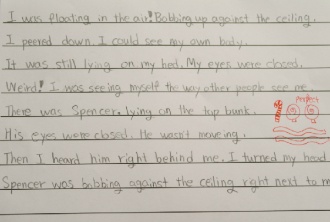 I was floating in the air! Bobbing up against the ceiling.
I peered down. I could see my own body.
It was still lying on my bed. My eyes were closed.
Weird! I was seeing myself the way other people see me.
There was Spencer, lying on the top bunk.
perfect
His eyes were closed. He wasn't moveing.
Then I heard him right behind me. I turned my head
Spencer was bobbing against the ceiling right next to m